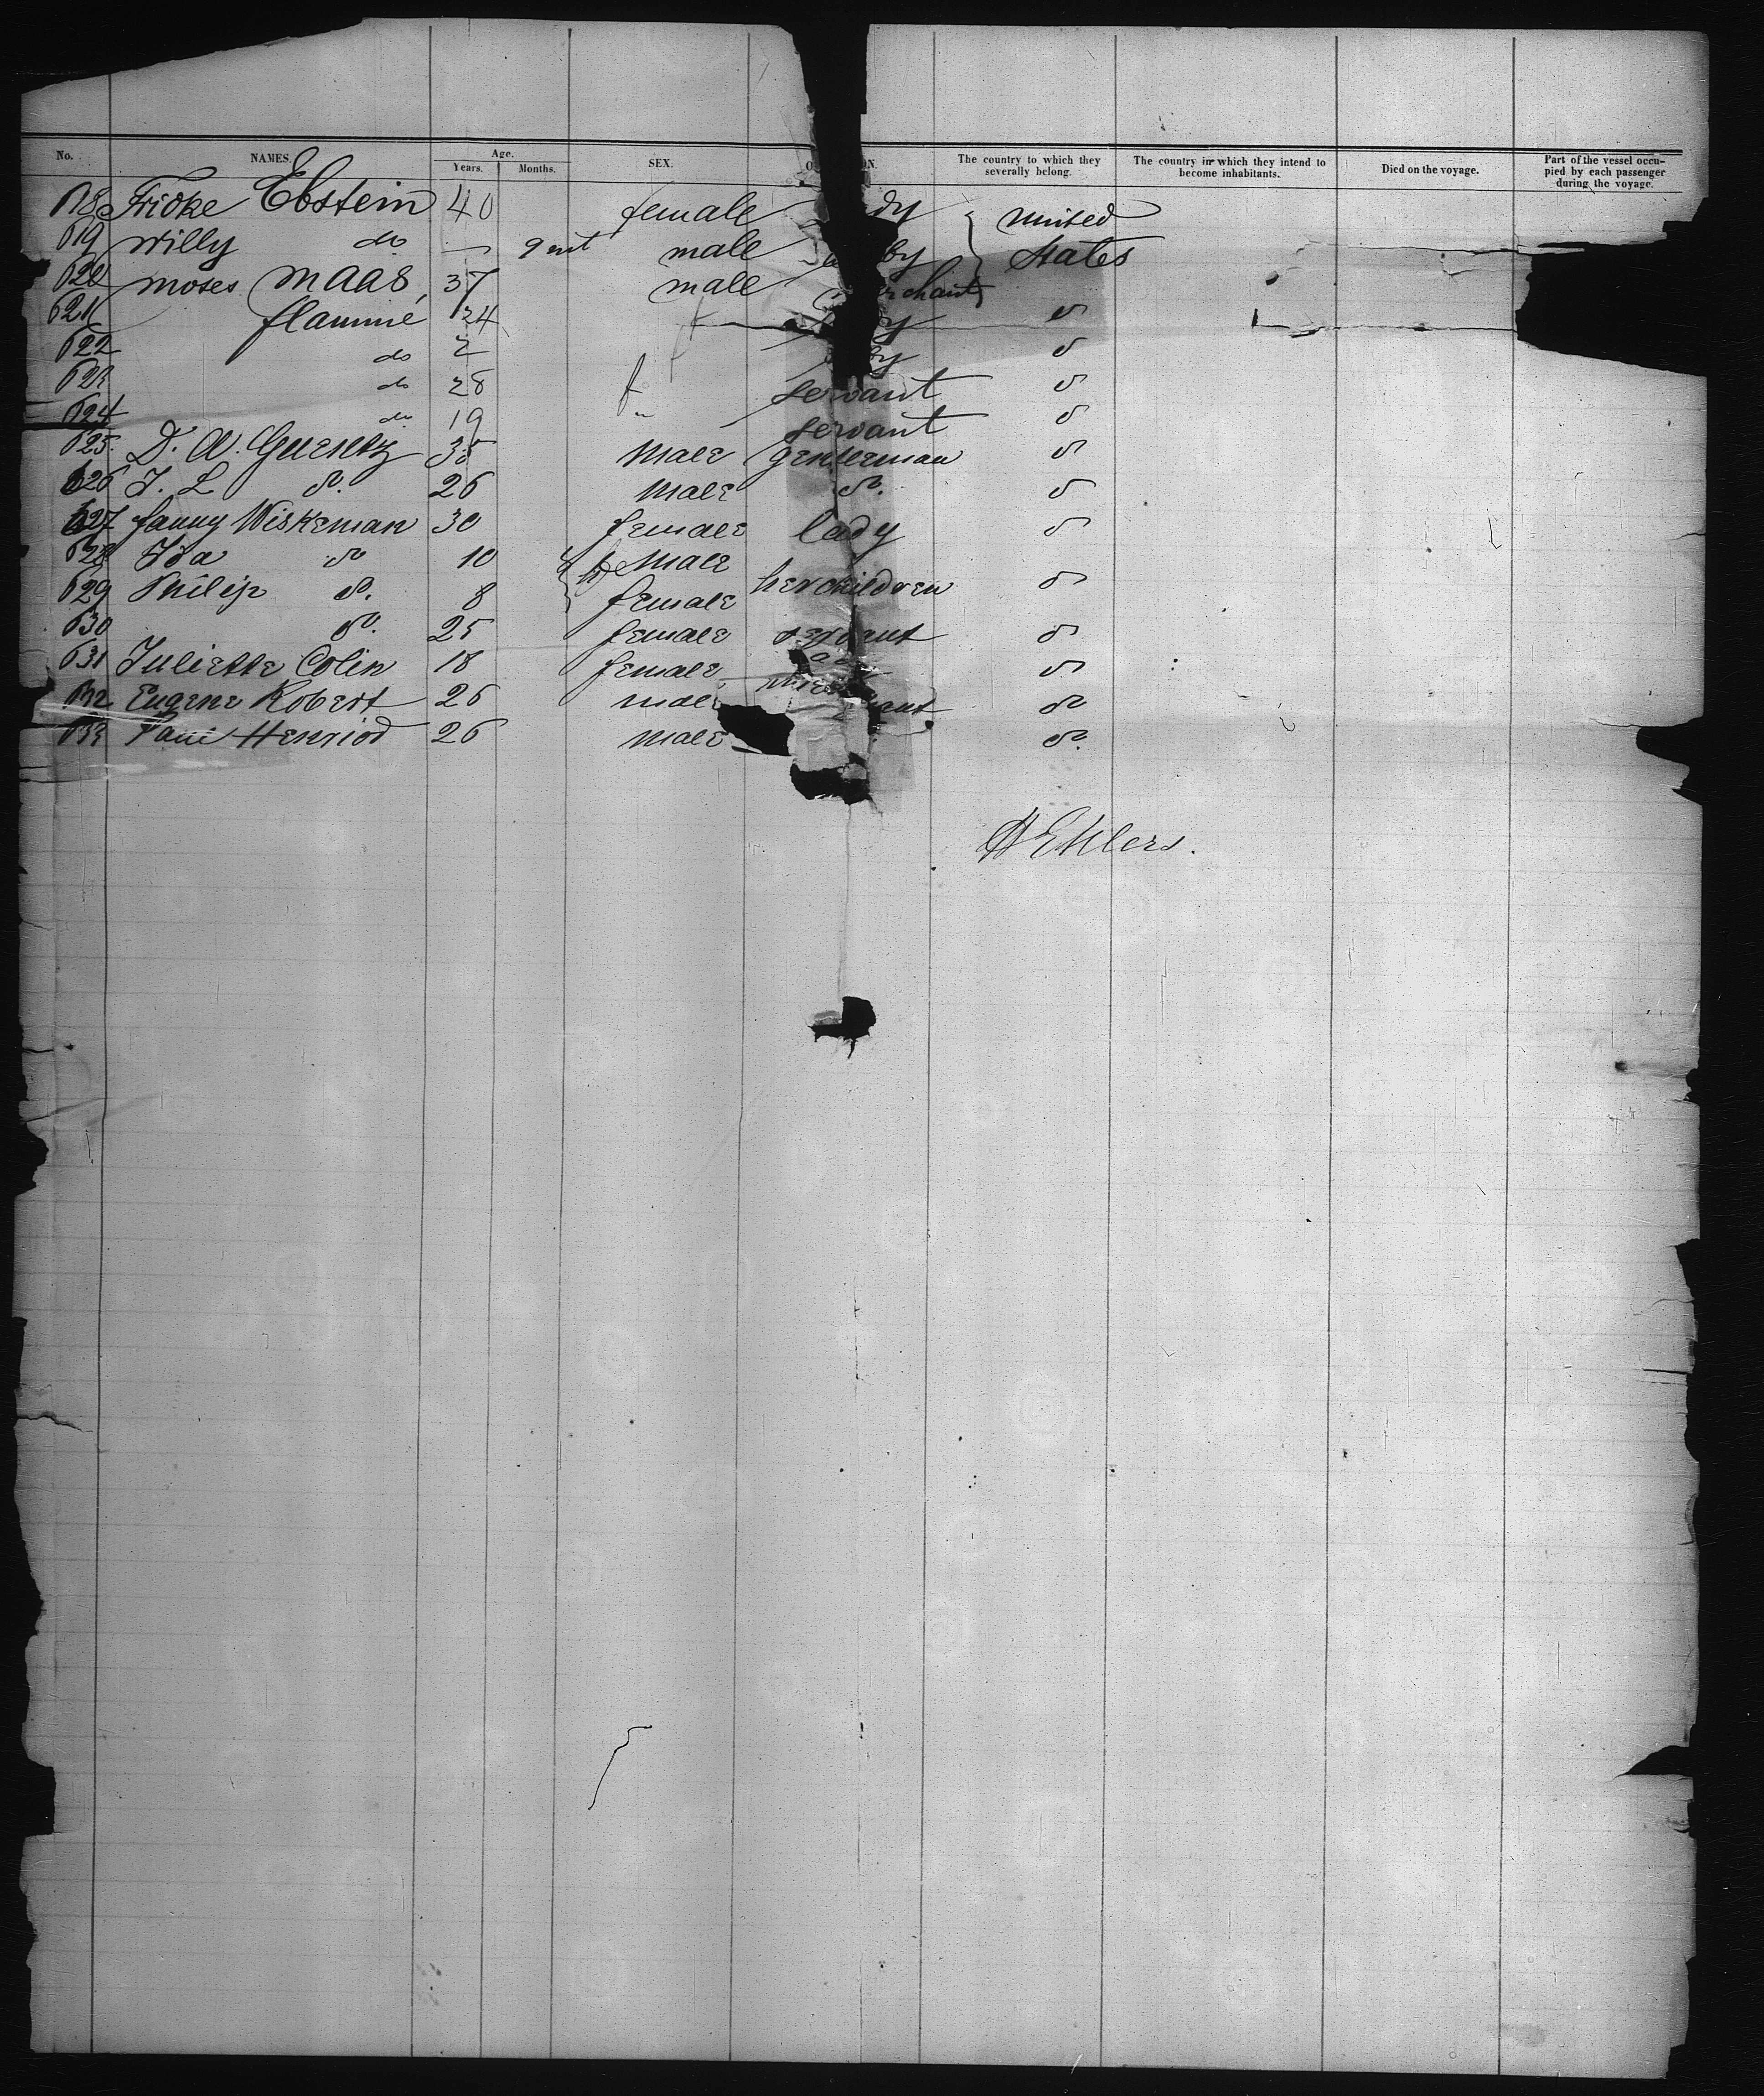 No. NAMES. Age. Years. Months. SEX. The country to which they severally belong. The country in which they intend to become inhabitants. Died on the voyage. Part of the vessel occupied by each passenger during the voyage.
618 Fridke Ebstein 40 female united
619 Willy do — 9 mt male States
620 Moses Maas, 37 male
621 24 do
622 do 2 do
623 do 28 f servant do
624 do 19 " servant do
625. D. A. 35 Male Gentleman do
626 J. L do. 26 Male do. do
627 Fanny Wiskeman 30 female lady do
628 Ida do 10 Male
629 Philip do. 8 female her children do
630 do. 25 female servant do
631 Juliette Colin 18 female do
632 Eugene Robert 26 male do
633 Paul Henriod 26 Male do.
H Ehlers.